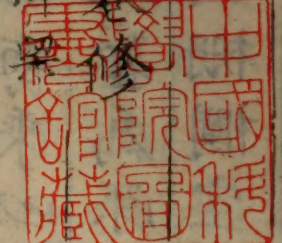 中國科
學院圖
書舘藏
修
梁